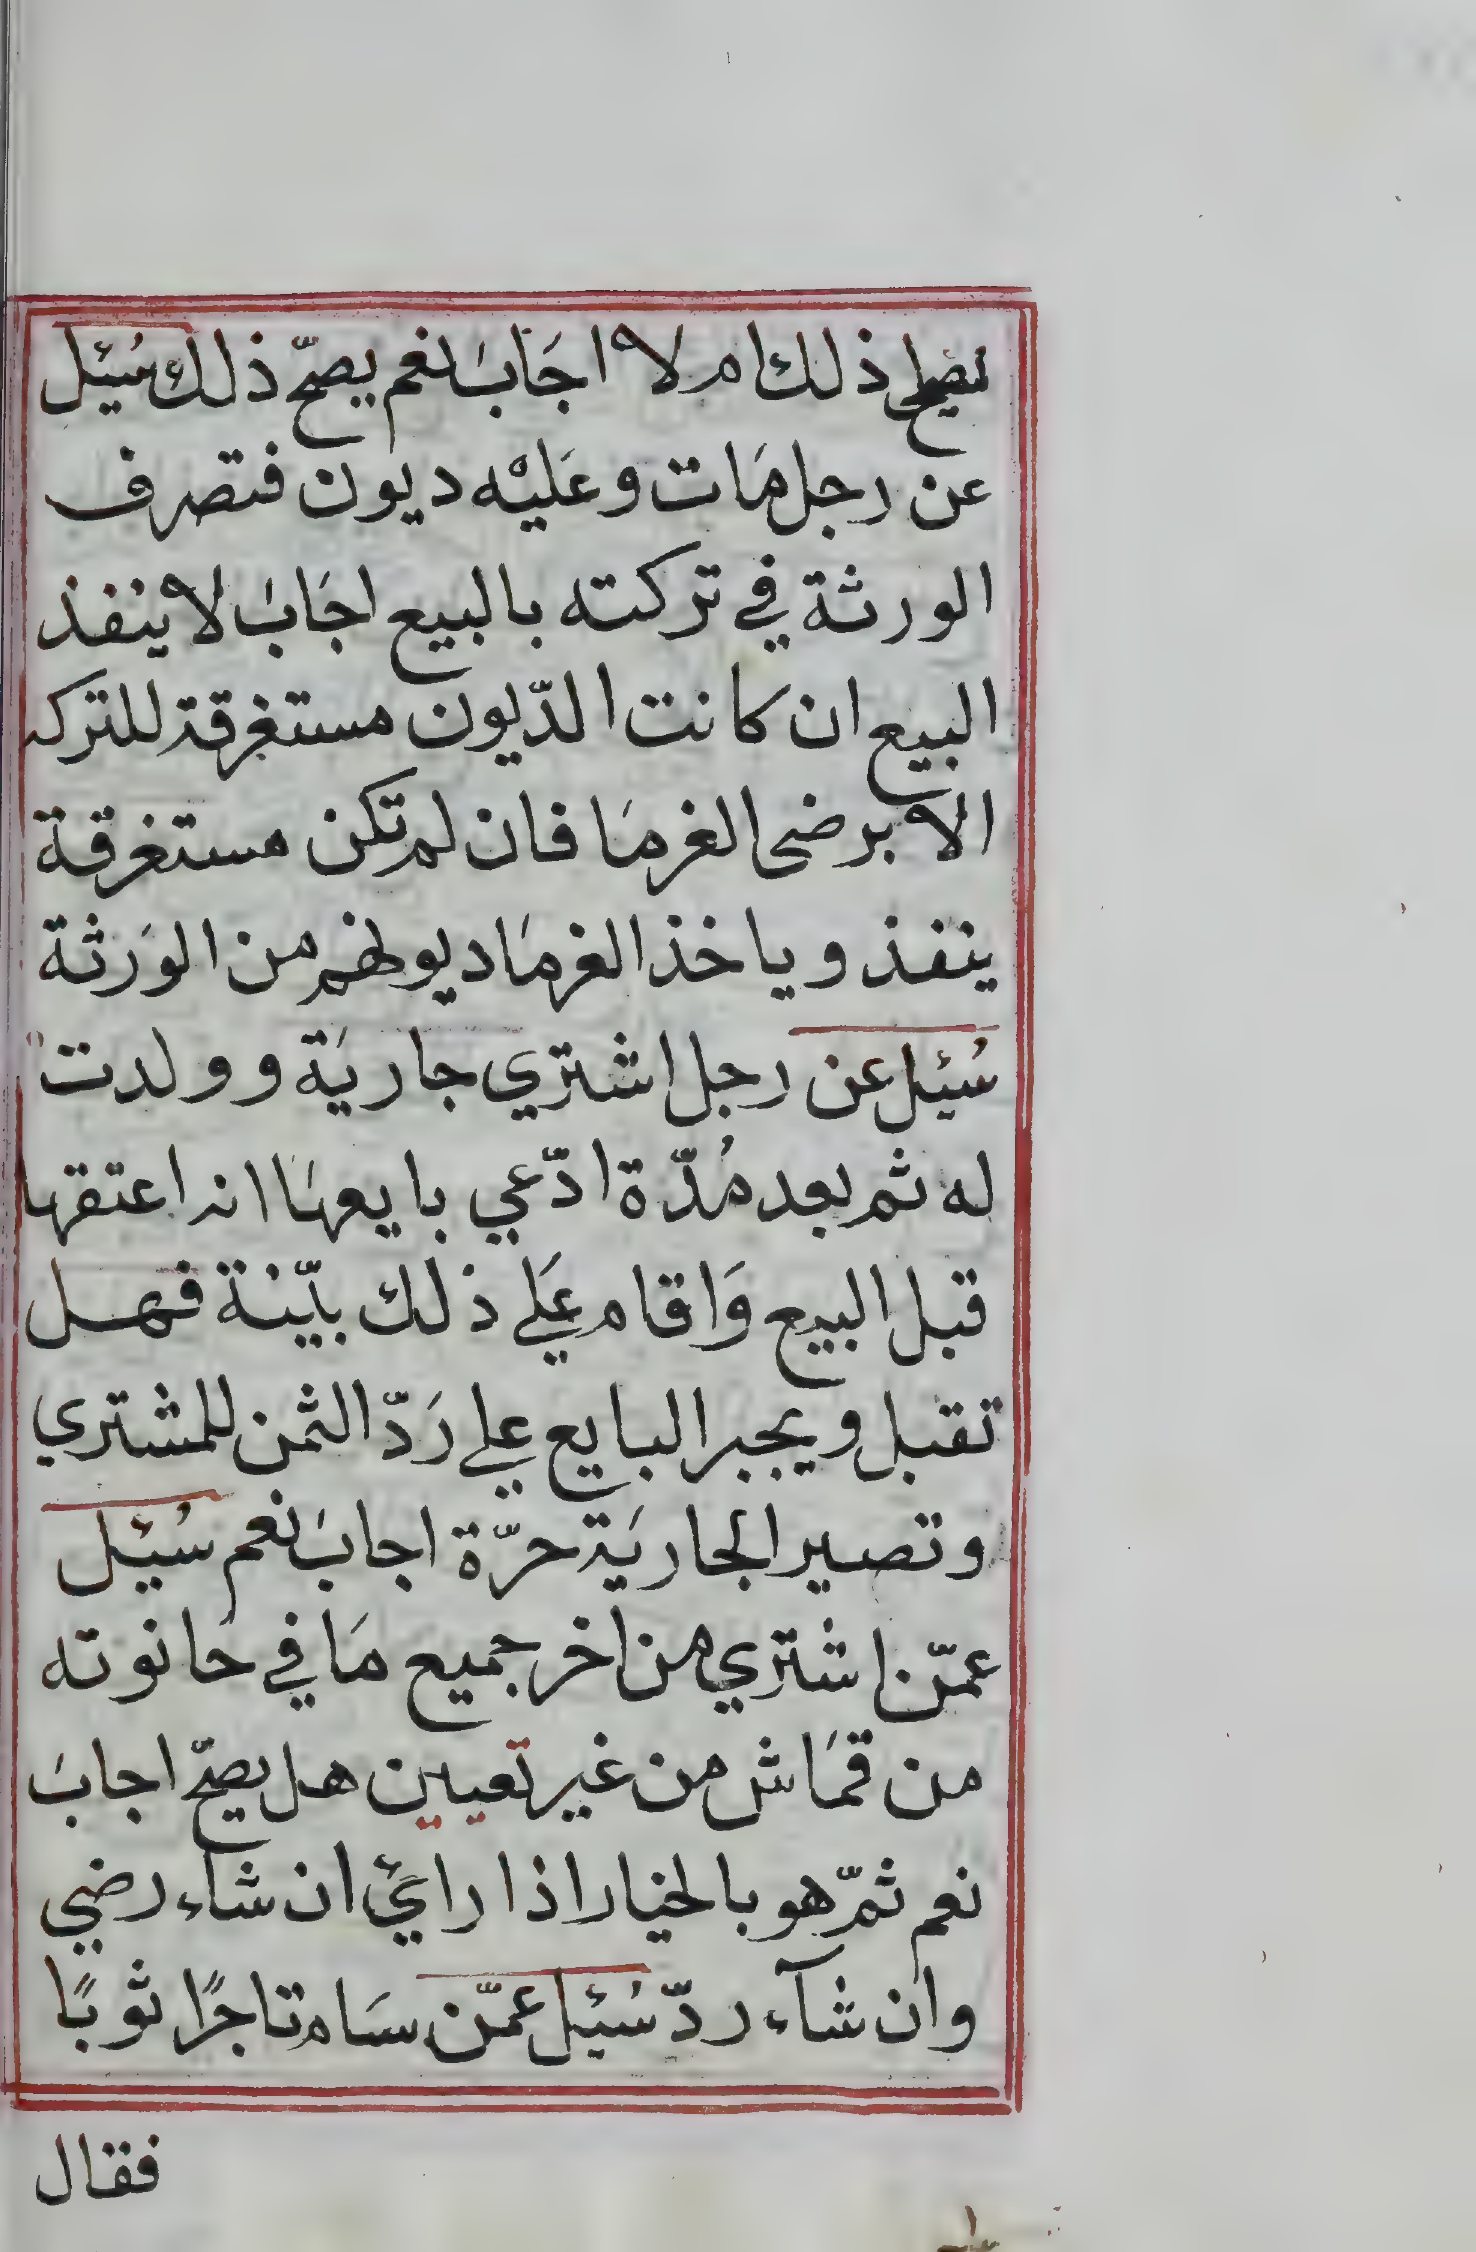 يصح ذلك ام لا اجَابَ نعم يصحّ ذلك سُئِل
عن رجل مَات وعَليْه ديون فتصرف
الورثة في تركته بالبيع اجَابَ لا ينفذ
البيع ان كانت الدّيون مستغرقة للتركه
الا برضى الغرمَا فان لم تكن مستغرقة
ينفذ وياخذ الغرمَا ديونهم من الورَثة
سُئِل عن رجل اشتري جاريَة وولدت
له ثم بعد مُدّة ادّعي بايعهَا انه اعتقها
قبل البيع وَاقام عَلي ذلك بيّنة فهل
تقبل ويجبر البايع علي رَدّ الثمن للمشتري
وتصير الجاريَة حرّة اجابَ نعم سُئِل
عمّن اشتري من اخر جميع مَا في حَانوته
من قمَاش من غير تعيين هل يصحّ اجابَ
نعم ثمّ هو بالخيار اذا رايَ ان شاء رضي
وان شآء ردّ سُئِل عمّن سَام تاجرًا ثوبًا
فقال